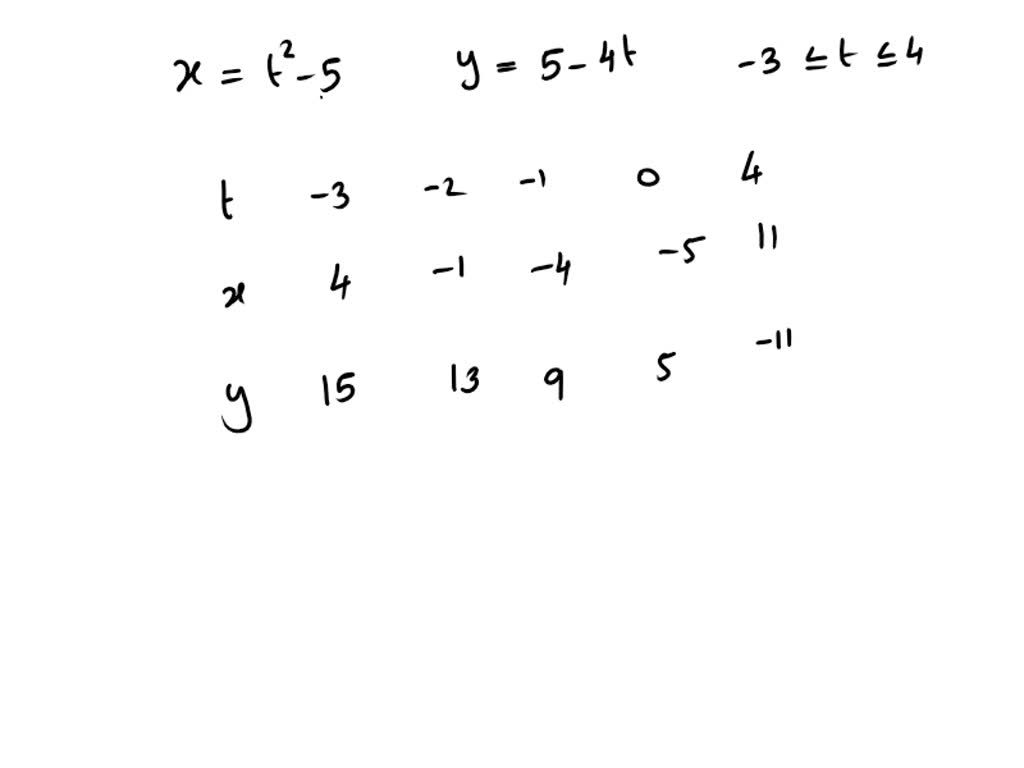 x = t² - 5 y = 5 - 4t -3 ≤ t ≤ 4
t -3 -2 -1 0 4
x 4 -1 -4 -5 11
y 15 13 9 5 -11